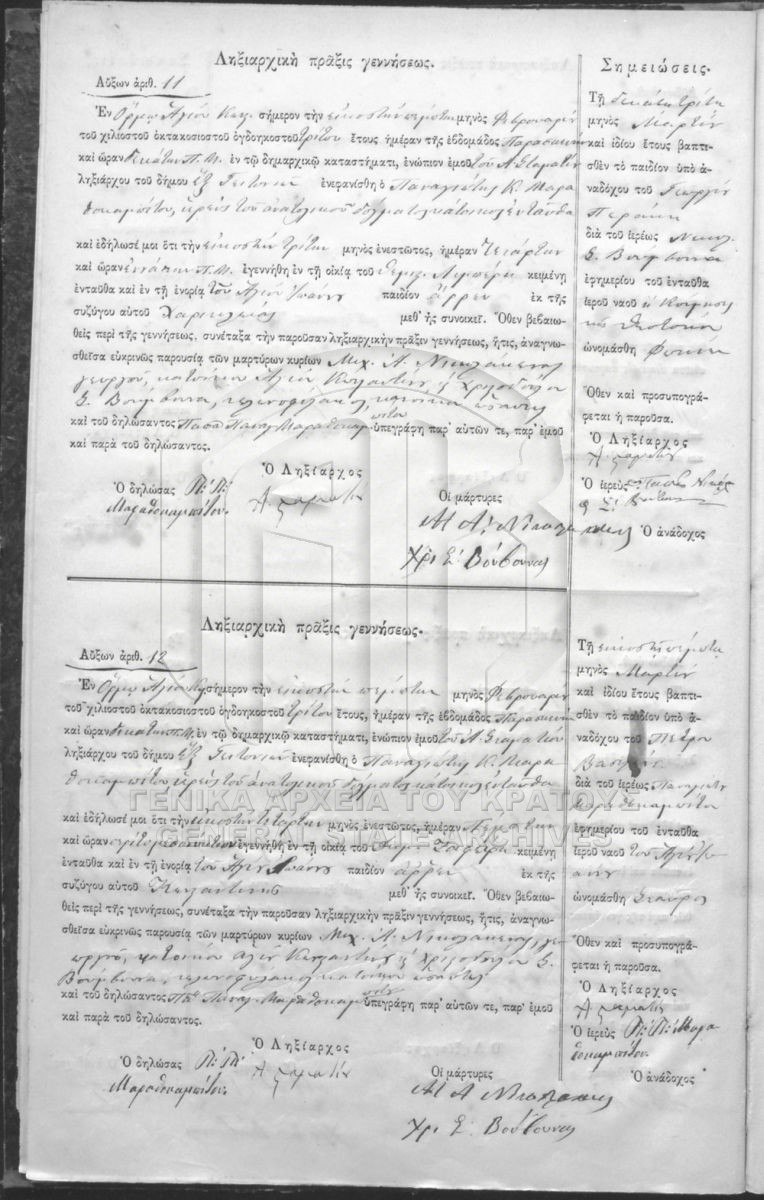 Ληξιαρχικὴ πρᾶξις γεννήσεως.
Αὔξων ἀριθ. 11
Ἐν Ὅρμῳ Ἁγίου Κυρ. σήμερον τὴν εἰκοστὴν πέμπτην μηνὸς Φεβρουαρίου
τοῦ χιλιοστοῦ ὀκτακοσιοστοῦ ὀγδοηκοστοῦ τρίτου ἔτους ἡμέραν τῆς ἑβδομάδος Παρασκευὴν
καὶ ὥραν δεκάτην Π.Μ. ἐν τῷ δημαρχικῷ καταστήματι, ἐνώπιον ἐμοῦ τοῦ Α. Σταματίου
ληξιάρχου τοῦ δήμου ἐνεφανίσθη ὁ Παναγιώτης Κ. Μαρα
θοκαμπίτου, ἱερεὺς τοῦ ἀνατολικοῦ δόγματος κάτοικος ἐνταῦθα
καὶ ἐδήλωσέ μοι ὅτι τὴν εἰκοστὴν τρίτην μηνὸς ἐνεστῶτος, ἡμέραν Τετάρτην
καὶ ὥραν ἐννάτην Π.Μ. ἐγεννήθη ἐν τῇ οἰκίᾳ τοῦ κειμένῃ
ἐνταῦθα καὶ ἐν τῇ ἐνορίᾳ τοῦ Ἁγίου Ἰωάννου παιδίον ἄρρεν ἐκ τῆς
συζύγου αὐτοῦ Χαρικλείας μεθ᾽ ἧς συνοικεῖ. Ὅθεν βεβαιω-
θεὶς περὶ τῆς γεννήσεως, συνέταξα τὴν παροῦσαν ληξιαρχικὴν πρᾶξιν γεννήσεως, ἥτις, ἀναγνω-
σθεῖσα εὐκρινῶς παρουσίᾳ τῶν μαρτύρων κυρίων Μιχ. Α. Νικολάκενας
γεωργοῦ, κατοίκου Χρισοδούλου
Σ. Βούβουνα, κατοίκου
καὶ τοῦ δηλώσαντος Παπᾶ Παναγ. Μαραθοκαμπίτου ὑπεγράφη παρ᾽ αὐτῶν τε, παρ᾽ ἐμοῦ
καὶ παρὰ τοῦ δηλώσαντος.
Ὁ Ληξίαρχος
Ὁ δηλώσας Π: Π: Μαραθοκαμπίτου.
Α. Σταματίου
Οἱ μάρτυρες
Χρ: Σ. Βούβουνας
Σημειώσεις.
Τῇ δεκάτῃ τρίτῃ
μηνὸς Μαρτίου
καὶ ἰδίου ἔτους βαπτι-
σθὲν τὸ παιδίον ὑπὸ ἀ-
ναδόχου τοῦ Γεωργίου
διὰ τοῦ ἱερέως Νικολ.
Σ. Βουβουνα
ἐφημερίου τοῦ ἐνταῦθα
ἱεροῦ ναοῦ ἡ Κοίμησις
τῆς Θεοτόκου
ὠνομάσθη
Ὅθεν καὶ προσυπογρά-
φεται ἡ παροῦσα.
Ὁ Ληξίαρχος
Α. Σταματίου
Ὁ ἱερεὺς
Ὁ ἀνάδοχος
Ληξιαρχικὴ πρᾶξις γεννήσεως.
Αὔξων ἀριθ. 12
Ἐν Ὅρμῳ Ἁγίου Κυρ. σήμερον τὴν εἰκοστὴν πέμπτην μηνὸς Φεβρουαρίου
τοῦ χιλιοστοῦ ὀκτακοσιοστοῦ ὀγδοηκοστοῦ τρίτου ἔτους, ἡμέραν τῆς ἑβδομάδος Παρασκευὴν
καὶ ὥραν δεκάτην Π.Μ. ἐν τῷ δημαρχικῷ καταστήματι, ἐνώπιον ἐμοῦ τοῦ Α. Σταματίου
ληξιάρχου τοῦ δήμου ἐνεφανίσθη ὁ Παναγιώτης Κ. Μαρα
θοκαμπίτου ἱερεὺς τοῦ ἀνατολικοῦ δόγματος κάτοικος ἐνταῦθα
καὶ ἐδήλωσέ μοι ὅτι τὴν εἰκοστὴν τετάρτην μηνὸς ἐνεστῶτος, ἡμέραν Πέμπτην
καὶ ὥραν ἐγεννήθη ἐν τῇ οἰκίᾳ τοῦ κειμένῃ
ἐνταῦθα καὶ ἐν τῇ ἐνορίᾳ τοῦ Ἁγίου Ἰωάννου παιδίον ἄρρεν ἐκ τῆς
συζύγου αὐτοῦ μεθ᾽ ἧς συνοικεῖ. Ὅθεν βεβαιω-
θεὶς περὶ τῆς γεννήσεως, συνέταξα τὴν παροῦσαν ληξιαρχικὴν πρᾶξιν γεννήσεως, ἥτις, ἀναγνω-
σθεῖσα εὐκρινῶς παρουσίᾳ τῶν μαρτύρων κυρίων Μιχ. Α. Νικολάκενας γε
ωργοῦ, κατοίκου Χρισοδούλου Σ.
Βούβουνα, κατοίκου
καὶ τοῦ δηλώσαντος Παναγ. Μαραθοκαμπίτου ὑπεγράφη παρ᾽ αὐτῶν τε, παρ᾽ ἐμοῦ
καὶ παρὰ τοῦ δηλώσαντος.
Ὁ Ληξίαρχος
Ὁ δηλώσας Π: Π: Μαραθοκαμπίτου.
Α. Σταματίου
Οἱ μάρτυρες
Χρ: Σ. Βούβουνας
Τῇ εἰκοστῇ πέμπτῃ
μηνὸς Μαρτίου
καὶ ἰδίου ἔτους βαπτι-
σθὲν τὸ παιδίον ὑπὸ ἀ-
ναδόχου τοῦ Πέτρου
διὰ τοῦ ἱερέως Παναγιώτη
Μαραθοκαμπίτου
ἐφημερίου τοῦ ἐνταῦθα
ἱεροῦ ναοῦ τοῦ Ἁγίου Ἰω
άννου
ὠνομάσθη Σταῦρος
Ὅθεν καὶ προσυπογρά-
φεται ἡ παροῦσα.
Ὁ Ληξίαρχος
Α. Σταματίου
Ὁ ἱερεὺς Π: Π: Μαρα
θοκαμπίτου.
Ὁ ἀνάδοχος
ΓΕΝΙΚΑ ΑΡΧΕΙΑ ΤΟΥ ΚΡΑΤΟΥΣ
GENERAL STATE ARCHIVES